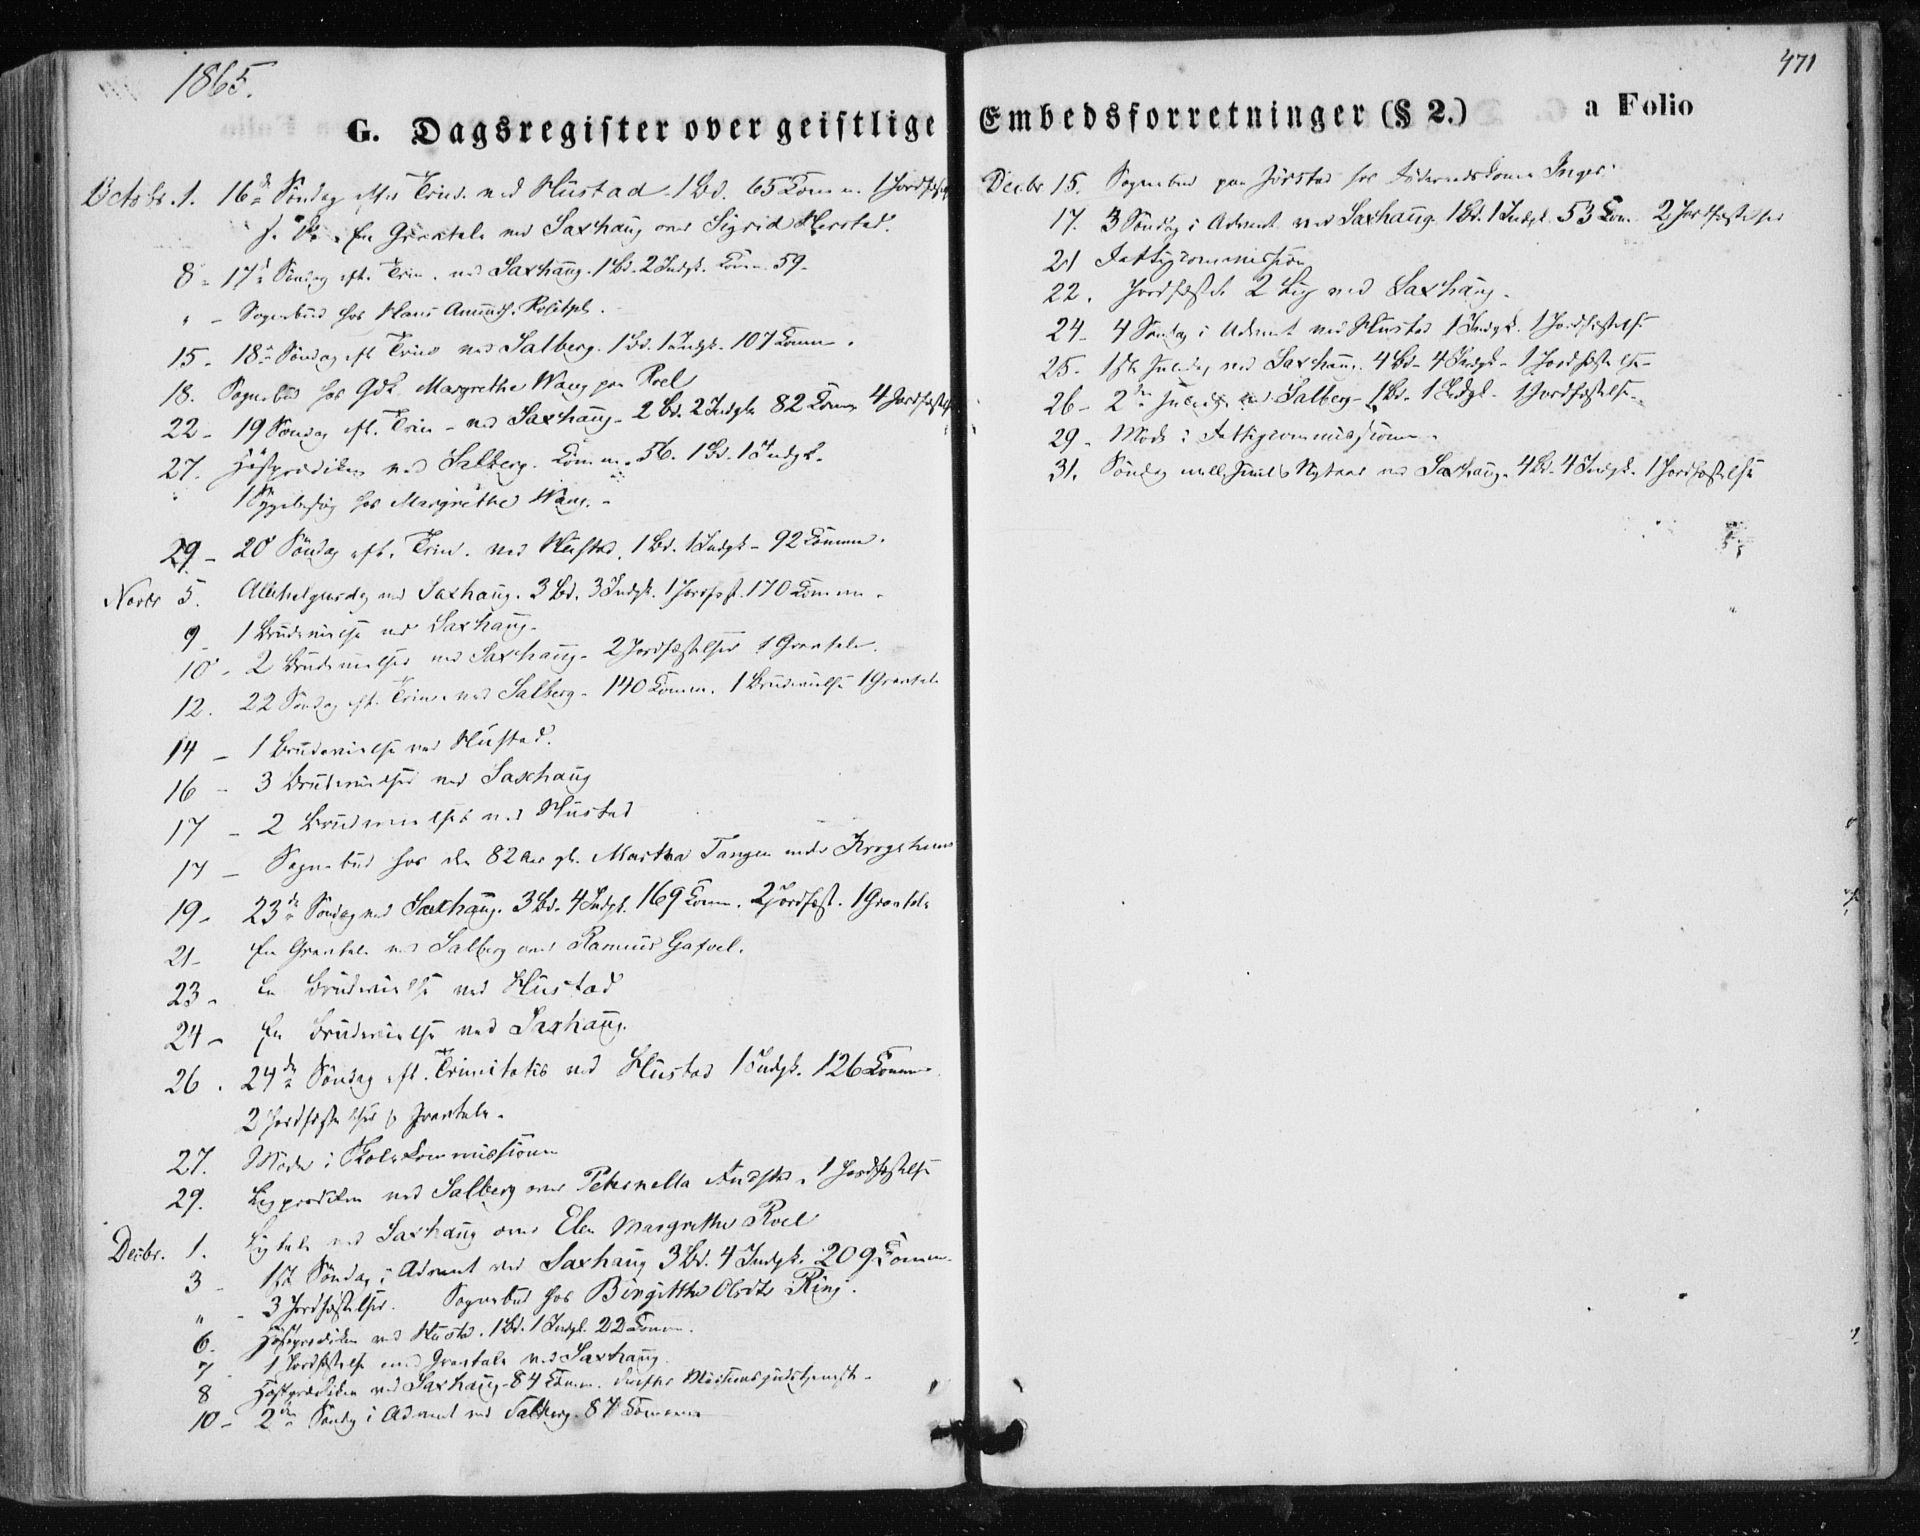 1865.
471
G. Dagsregister over geistlige Embedsforretninger (§ 2.) a Folio
Octobr. 1. 16de Søndag efter Trin. ved Hustad. 1 Bd. 65 Comm. 1 Jordfæst
En Gravtale ved Saxhaug over Sigrid
8 - 17de Søndag eft. Trin. ved Saxhaug. 1 Bd. 2 Indgk. Comm. 59.
" - Sognebud hos Hans
15 - 18de Søndag eft Trin ved Salberg. 1 Bd. 1 Indgk. 107 Comm.
18. Sognebud hos Gdk. Margrethe Wang paa Roel
22 - 19 Søndag eft. Trin - ved Saxhaug - 2 Bd. 2 Indgk 82 Comm 4 Jordfæstels
27. Høstprædiken ved Salberg. Comm. 56. 1 Bd. 1 Indgk.
" 1 Sygebesøg hos Margrethe Wang. -
29 - 20 Søndag eft. Trin. ved Hustad. 1 Bd. 1 Indgk - 92 Comm.
Novbr 5. Allehelgensdag ved Saxhaug. 3 Bd. 3 Indgk. 1 Jordfæst. 170 Comm.
9 - 1 Brudevielse ved Saxhaug -
10 - 2 Brudevielser ved Saxhaug - 2 Jordfæstelser 1 Gravtale.
12. 22 Søndag eft. Trin. ved Salberg - 140 Comm. 1 Brudevielse 1 Gravtale
14 - 1 Brudevielse ved Hustad.
16 - 3 Brudevielser ved Saxhaug
17 - 2 Brudevielser ved Hustad
17 - Sognebud hos den 82 Aar gl. Martha Tangen under
19 - 23de Søndag ved Saxhaug. 3 Bd. 4 Indgk. 169 Comm. 2 Jordfæst. 1 Gravtale
21 - En Gravtale ved Salberg over Rasmus
23 - En Brudevielse ved Hustad
24 - En Brudevielse ved Saxhaug.
26. 24de Søndag eft. Trinitatis ved Hustad 1 Indgk. 126 Comm.
2 Jordfæstelser Gravtale.
27. Møde i Skolekommissionen
29. Ligprædiken ved Salberg over Peternella 1 Jordfæstelse
Decbr. 1. Ligtale ved Saxhaug over Elen Margrethe Roel
3 - 1st Søndag i Advent ved Saxhaug 3 Bd. 4 Indgk. 209 Comm.
" - 3 Jordfæstelser. Sognebud hos Birgitthe Olsdtr Ring.
6. Høstprædiken ved Hustad. 1 Bd. 1 Indgk. 22 Comm.
7 - 1 Jordfæstelse med Gravtale ved Saxhaug.
8 Høstprædiken ved Saxhaug - 84 Comm. derefter Missionsgudstjeneste -
10 - 2den Søndg i Advent ved Salberg. 87 Comm
Decbr 15. Sognebud paa Jørstad hos Inger
17. 3 Søndag i Advent ved Saxhaug. 1 Bd. 1 Indgk. 53 Com 2 Jordfæstelser
21 Fattigcommission
22. Jordfæstet 2 Lig ved Saxhaug -
24 - 4 Søndag i Advent ved Hustad 1 Indgk. 1 Jordfæstelse
25. 1ste Juledag ved Saxhaug. 4 Bd - 4 Indgk - 1 Jordfæstelse -
26 - 2den Juledag ved Salberg - 1 Bd. 1 Indgk - 1 Jordfæstelse -
29 - Møde i Fattigcommissionen -
31. Søndag mell. Juul & Nytaar ved Saxhaug. 4 Bd. 4 Indgk. 1 Jordfæstelse